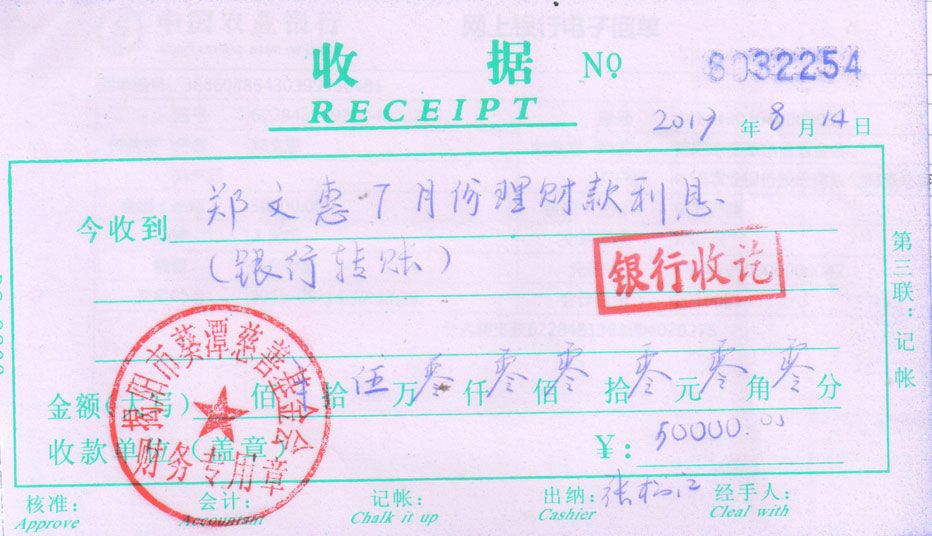 收 据 NO. 6032254
RECEIPT
2019 年 8 月 14 日
今收到 郑文惠7月份理财款利息
(银行转账)
银行收讫
第三联:记帐
揭阳市葵潭慈善基金会
财务专用章
金额(大写) 佰 拾 伍 万 零 仟 零 佰 零 拾 零 元 零 角 零 分
收款单位(盖章) ¥: 50000.00
核准: 会计: 记帐: 出纳: 经手人:
Approve Accountant Chalk it up Cashier Cleal with